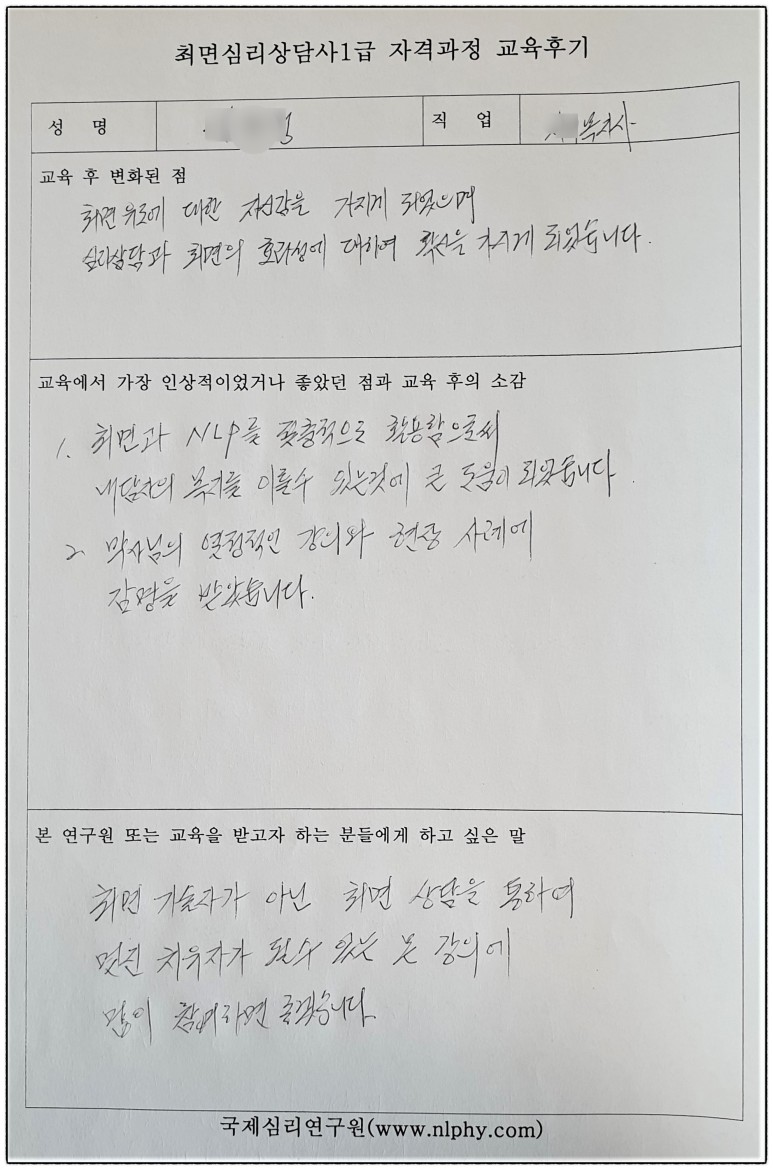 최면심리상담사1급 자격과정 교육후기
성 명
직 업 복지사
교육 후 변화된 점
최면유도에 대한 자신감을 가지게 되었으며
심리상담과 최면의 효과성에 대하여 확신을 가지게 되었습니다.
교육에서 가장 인상적이었거나 좋았던 점과 교육 후의 소감
1. 최면과 NLP를 맞춤적으로 활용함으로써
내담자의 복지를 이룰수 있는것에 큰 도움이 되었습니다.
2 박사님의 열정적인 강의와 현장 사례에
감명을 받았습니다.
본 연구원 또는 교육을 받고자 하는 분들에게 하고 싶은 말
최면 기술자가 아닌 최면 상담을 통하여
멋진 치유자가 될수 있는 본 강의에
많이 참여하면 좋겠습니다.
국제심리연구원(www.nlphy.com)